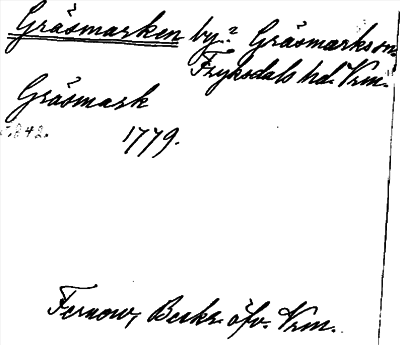 Gräsmarken by.? Gräsmarks sn.
Fryksdals hd. Vrm.
Gräsmark
s. 848. 1779.
Fernow, Beskr. öfv. Vrm.